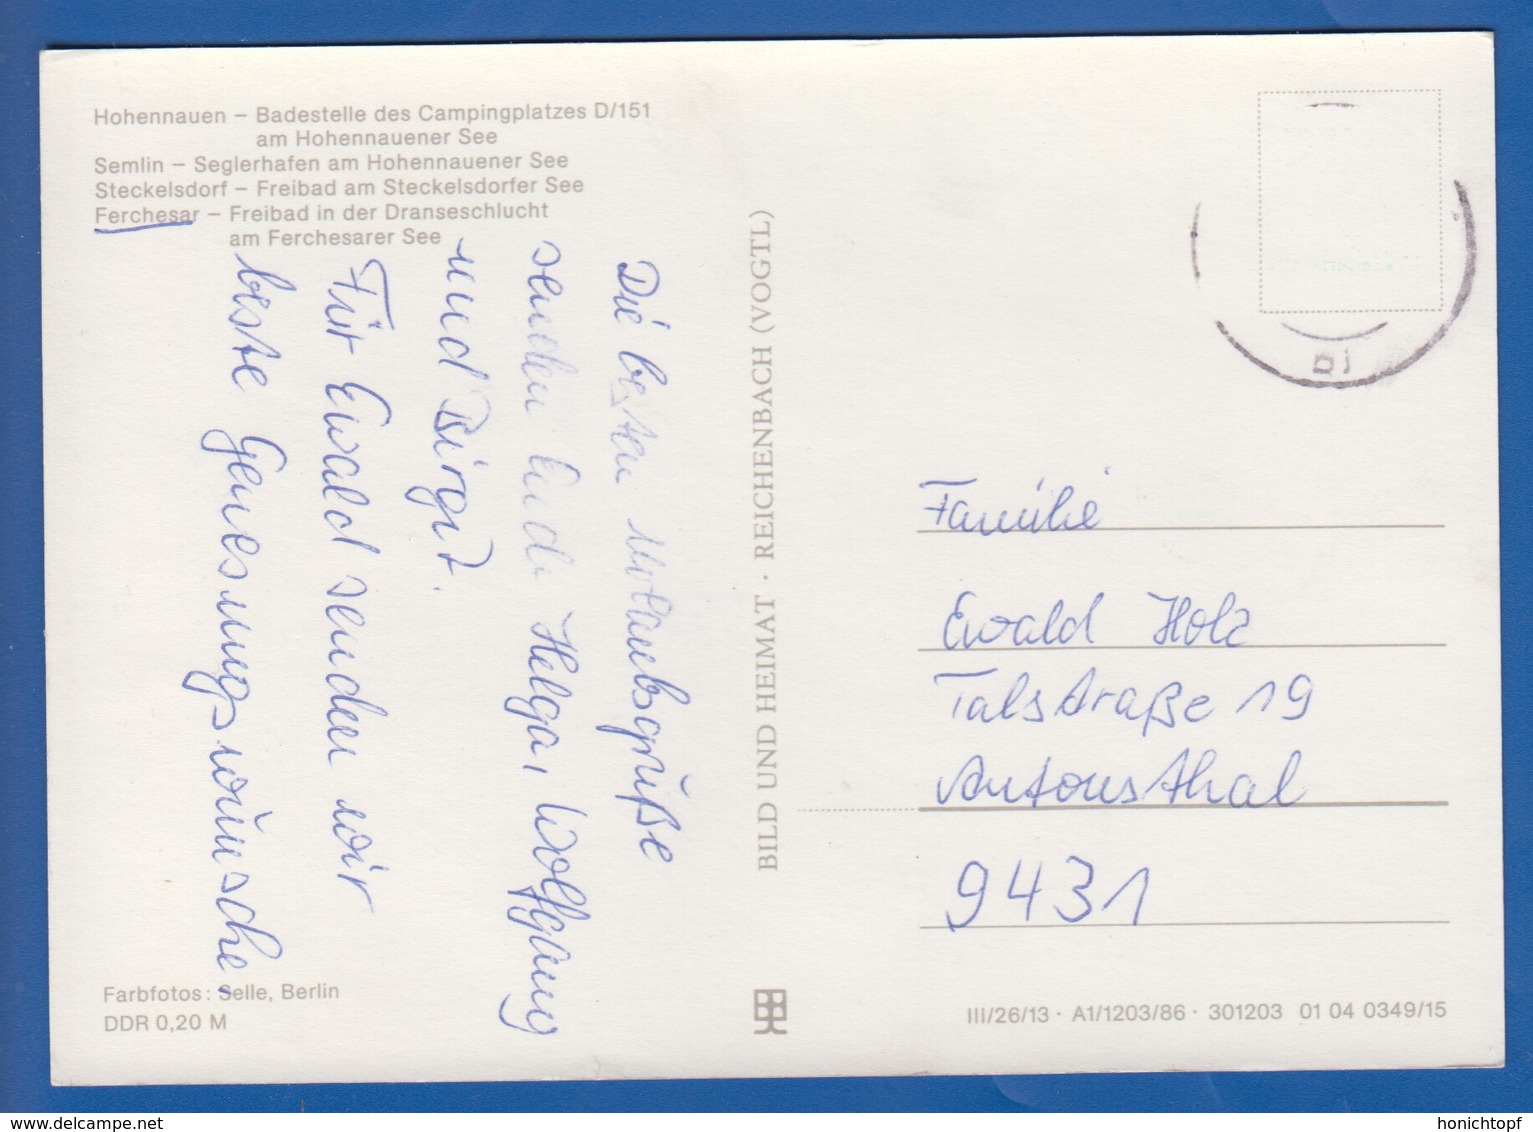 Hohennauen – Badestelle des Campingplatzes D/151
am Hohennauener See
Semlin – Seglerhafen am Hohennauener See
Steckelsdorf – Freibad am Steckelsdorfer See
Ferchesar – Freibad in der Dranseschlucht
am Ferchesarer See
Die besten Urlaubsgrüße
senden Euch Helga, Wolfgang
und Birgit.
Für Ewald senden wir
beste Genesungswünsche.
Farbfotos: Selle, Berlin
DDR 0,20 M
BILD UND HEIMAT · REICHENBACH (VOGTL)
Familie
Ewald Holz
Talstraße 19
Antonsthal
9431
III/26/13 · A1/1203/86 · 301203 01 04 0349/15
www.delcampe.net
honichtopf